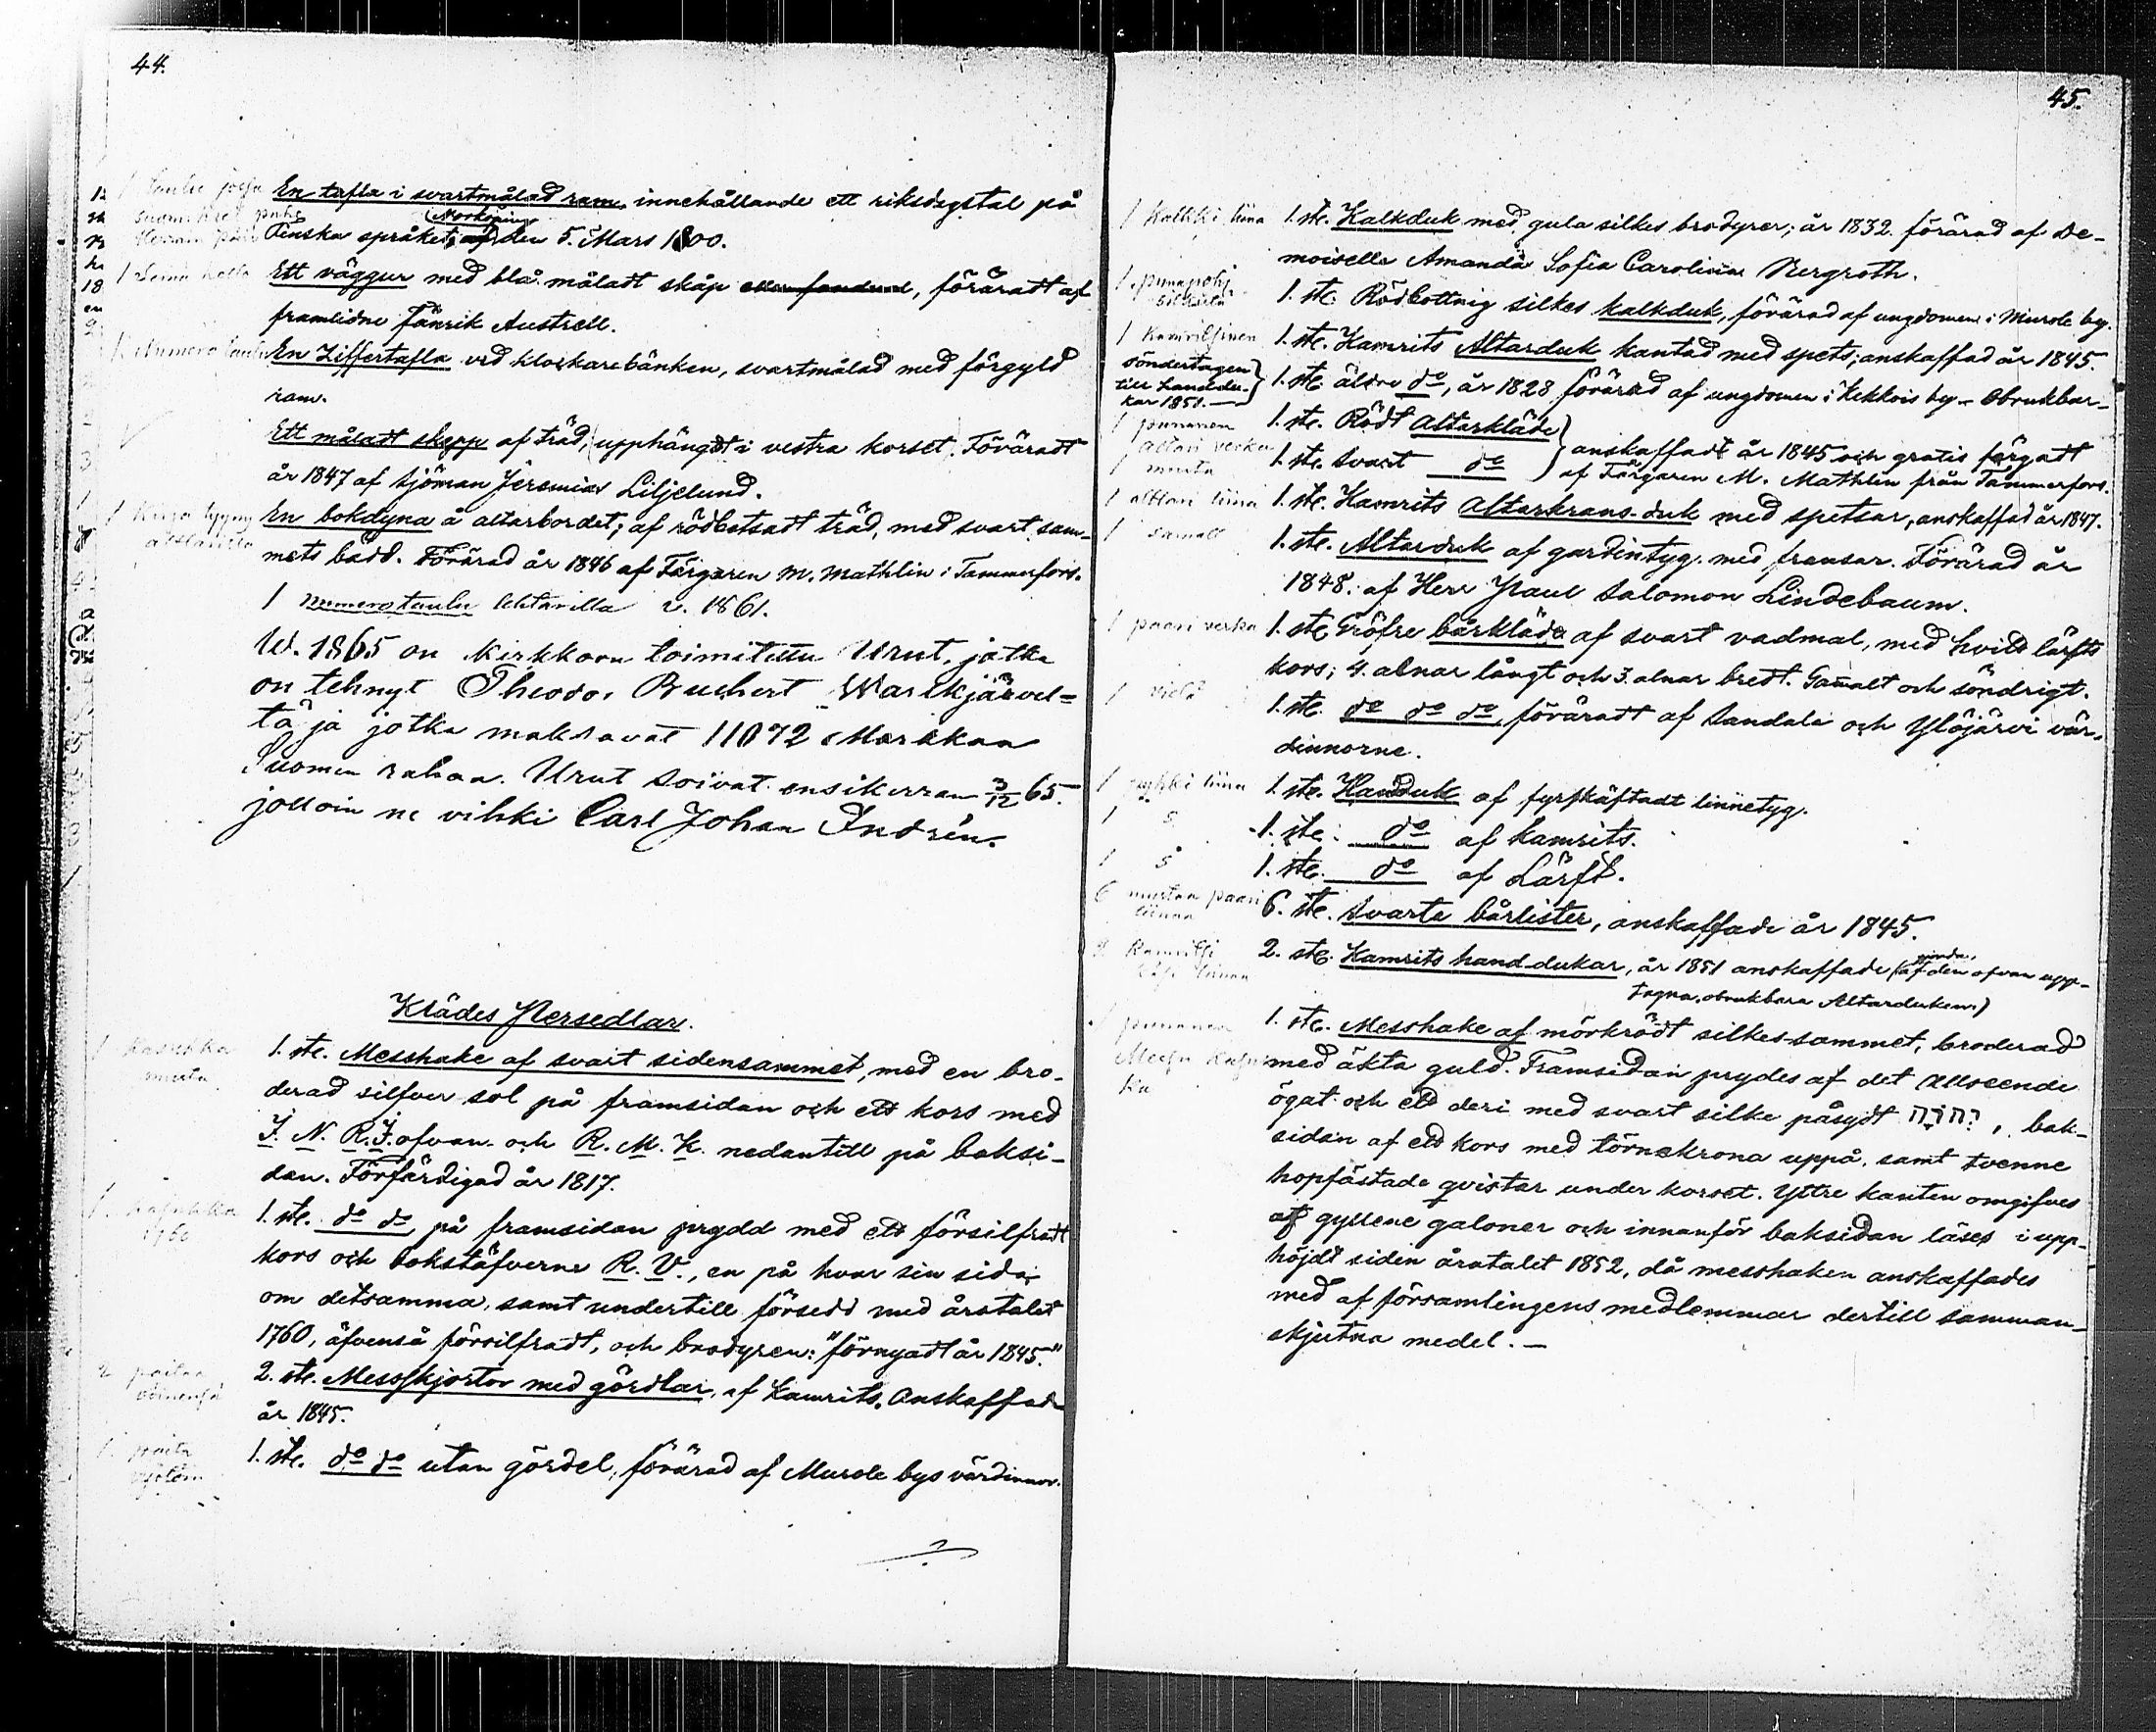 44.
En tafla i svartmålad ram, innehållande ett riksdagstal på
(Norköping
Finska språket, af den 5. Mars 1800.
Ett väggur med blå måladt skåp, föräradt af
framlidne Fänrik Austrell.
En Ziffertafla ved klockarebänken, svartmålad med förgyld
ram.
Ett måladt skepp af träd, upphängdt i vestra korset. Föräradt
år 1847 af sjöman Jeremias Liljelund.
En bokdyna å altarbordet; af rödbetsadt träd, med svart sam-
mets bädd. Förärad år 1846 af Färgaren M. Mathlin i Tammerfors.
1 numerotaulu lehtarilla v. 1861.
W. 1865 on kirkkoon toimitettu Urut, jotka
on tehnyt Theodor Buchert Warikjärvel=
tä ja jotka maksavat 11072 Markkaa
Suomen rahaa. Urut soivat ensikerran 3/12 65.
jolloin ne vihki Carl Johan Indrén.
Klädes Persedlar.
1 Kasukka
musta
1. ste. Messhake af svart sidensammet, med en bro-
derad silfver sol på framsidan och ett kors med
J. N. R. J. ofvan och R. M. K. nedantill på baksi-
dan. Förfärdigad år 1817.
1760
1. ste. do do, på framsidan prydd med ett försilfradt
kors och bokstäfverne R. V., en på hvar sin sida
om detsamma, samt undertill försedd med årstalet
1760, äfvenså försilfradt, och brodyren: "förnyadt år 1845."
2 paitaa
2. ste. Messskjortor med gördlar, af Kamrits. Anskaffade
år 1845.
1. paita
1. ste. do do utan gördel, förärad af Murole bys värdinnor.
45.
1 Kalkki liina
1. ste. Kalkduk med gula silkes brodyrer; år 1832 förärad af De-
moiselle Amanda Sofia Carolina Bergroth.
1. ste. Rödbottnig silkes kalkduk, förärad af ungdomen i Murole by.
1. ste. Kamrits Altarduk kantad med spets; anskaffad år 1845.
söndertagen
till handdu-
kar 1851. —
1. ste. äldre do, år 1828 förärad af ungdomen i Kekkois by. Obrukbar.
1 punanen
altari verka
musta
1. ste. Rödt Altarkläde
1. ste. Svart do
anskaffadt år 1845 och gratis färgadt
af Färgaren M. Mathlin från Tammerfors.
1 alttari liina
1. ste. Kamrits Altarkrans-duk med spetsar, anskaffad år 1847.
1 samall
1. ste. Altarduk af gardintyg med fransar. Förärad år
1848. af Herr Paul Salomon Lindebaum.
1 paari verka
1. ste. Gröfre bårkläde af svart vadmal, med hvitt lärfts
kors; 4. alnar långt och 3. alnar bredt. Gamalt och söndrigt.
1 vielä
1. ste. do do do, föräradt af Sandala och Ylöjärvi vär-
dinnorne.
1 pyhki liina
1. ste. Handduk af fyrskäftadt linnetyg.
1. ste. do af kamrits.
1. ste. do af Lärft.
6 mustaa paari
liinaa
6. ste. Svarta bårlister, anskaffade år 1845.
2 Kamritsi
käsi liinaa
2. ste. Kamrits hand-dukar, år 1851 anskaffade (af den ofvan upp-
tagna, obrukbara Altarduken.)
1 punanen
Messu kasuk
ka
1. ste. Messhake af mörkrödt silkes-sammet, broderad
med äkta guld. Framsidan prydes af det Allseende
ögat och ett deri med svart silke påsydt יהוה, bak-
sidan af ett kors med törnekrona uppå, samt tvenne
hopfästade qvistar under korset. Yttre kanten omgifves
af gyllene galoner och innanför baksidan läses i upp-
höjdt siden årstalet 1852, då messhaken anskaffades
med af församlingens medlemmar dertill samman-
skjutna medel. —